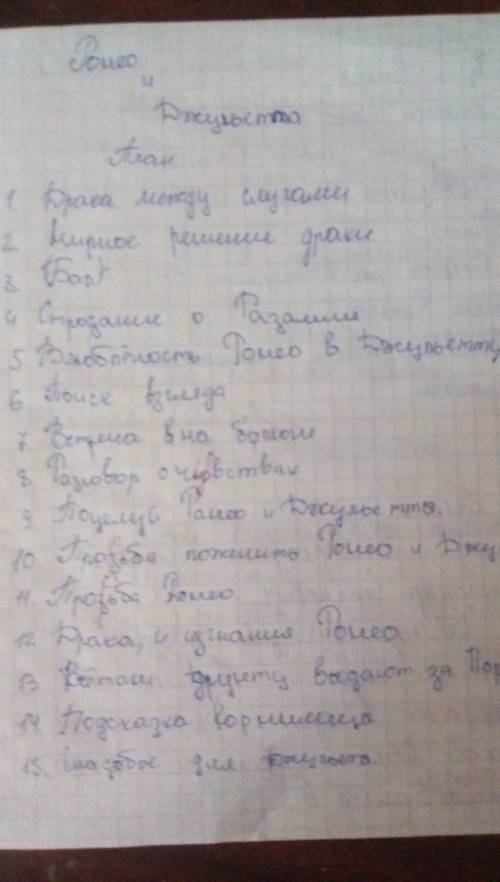 Ромео
и
Джульетта
План
1. Драка между слугами
2. Мирное решение драки
3. Бал
4. Строзание о Разалине
5. Влюблённость Ромео в Джульетту
6. Поиск взгляда
7. Встреча на болконе
8. Разговор о чювствах
9. Поцелуй Ромео и Джульетты.
10. Прозьба поженить Ромео и Джу
11. Прозьба Ромео
12. Драка, и изгнания Ромео.
13. выдают за Пор
14. Подсказка кормилица
15. для